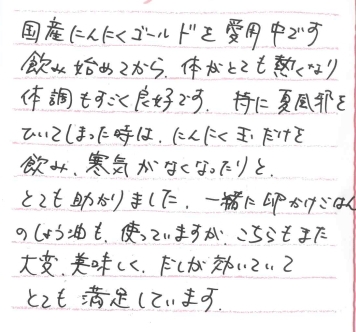 国産にんにくゴールドを愛用中です
飲み始めてから、体がとても熱くなり
体調もすごく良好です。特に夏風邪を
ひいてしまった時は、にんにく玉だけを
飲み、寒気がなくなったりと、
とても助かりました。一緒に卵かけごはん
のしょう油も、使っていますが、こちらもまた
大変、美味しく、だしが効いていて
とても満足しています。